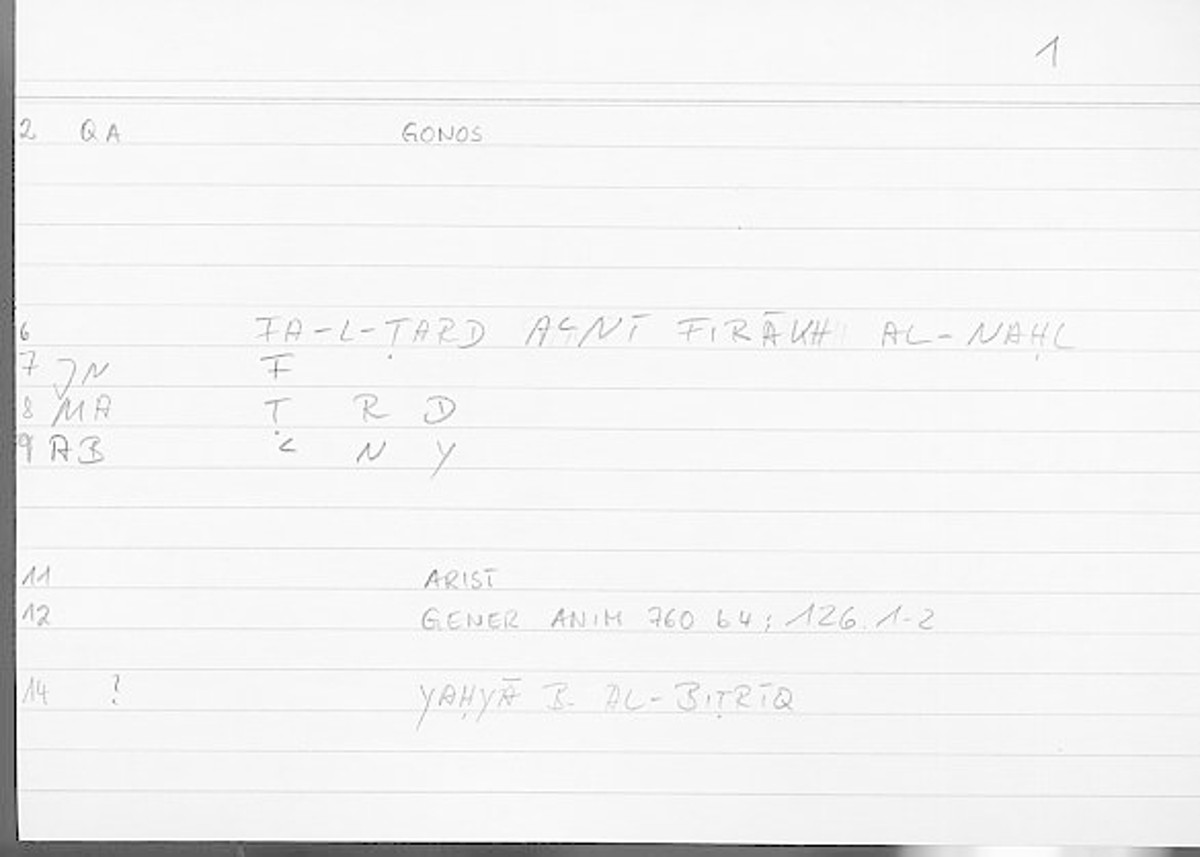 1
2 QA GONOS
6 FA-L-ṬARD AʿNĪ FIRĀKH AL-NAḤL
7 JN F
8 MA Ṭ R D
9 AB ʿ N Y
11 ARIST
12 GENER ANIM 760 b4; 126.1-2
14 ? YAḤYĀ B. AL-BIṬRĪQ